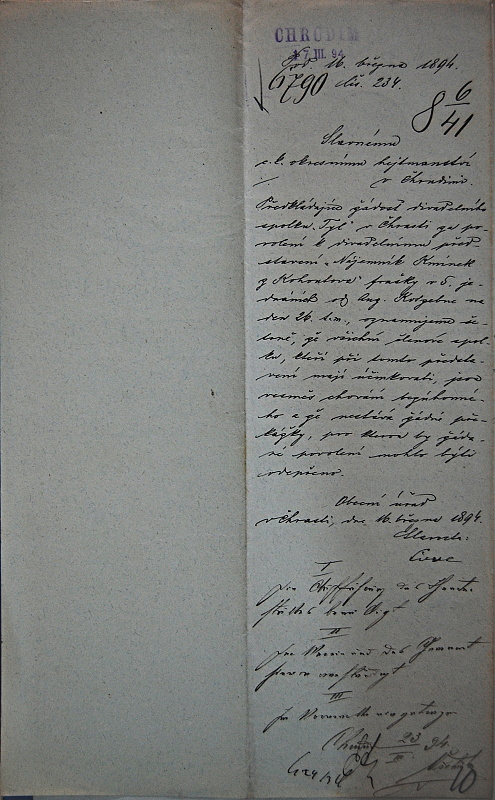 CHRUDIM
17 III. 94
Pod. 16. března 1894.
6790 čís. 234.
8 6/41
Slavnému
c. k. okresnímu hejtmanství
v Chrudimi.
Předkládajíce žádost divadelního
spolku „Tyl“ v Chrasti za po-
volení k divadelnímu před-
stavení „Nájemník Kmínek
z Kohoutova“ frašky v 5. je-
dnáních od Aug. Kotzebue na
den 26. t. m., oznamujeme šet-
rně, že všichni členové spol-
ku, kteří při tomto předsta-
vení mají účinkovati, jsou
vesměs chování bezúhonné-
ho a že nestává žádné pře-
kážky, pro kterou by žáda-
né povolení mohlo býti
odepřeno.
Obecní úřad
v Chrasti, dne 16. března 1894.
I
Die Aufführung des
II
III
23/III. 94.